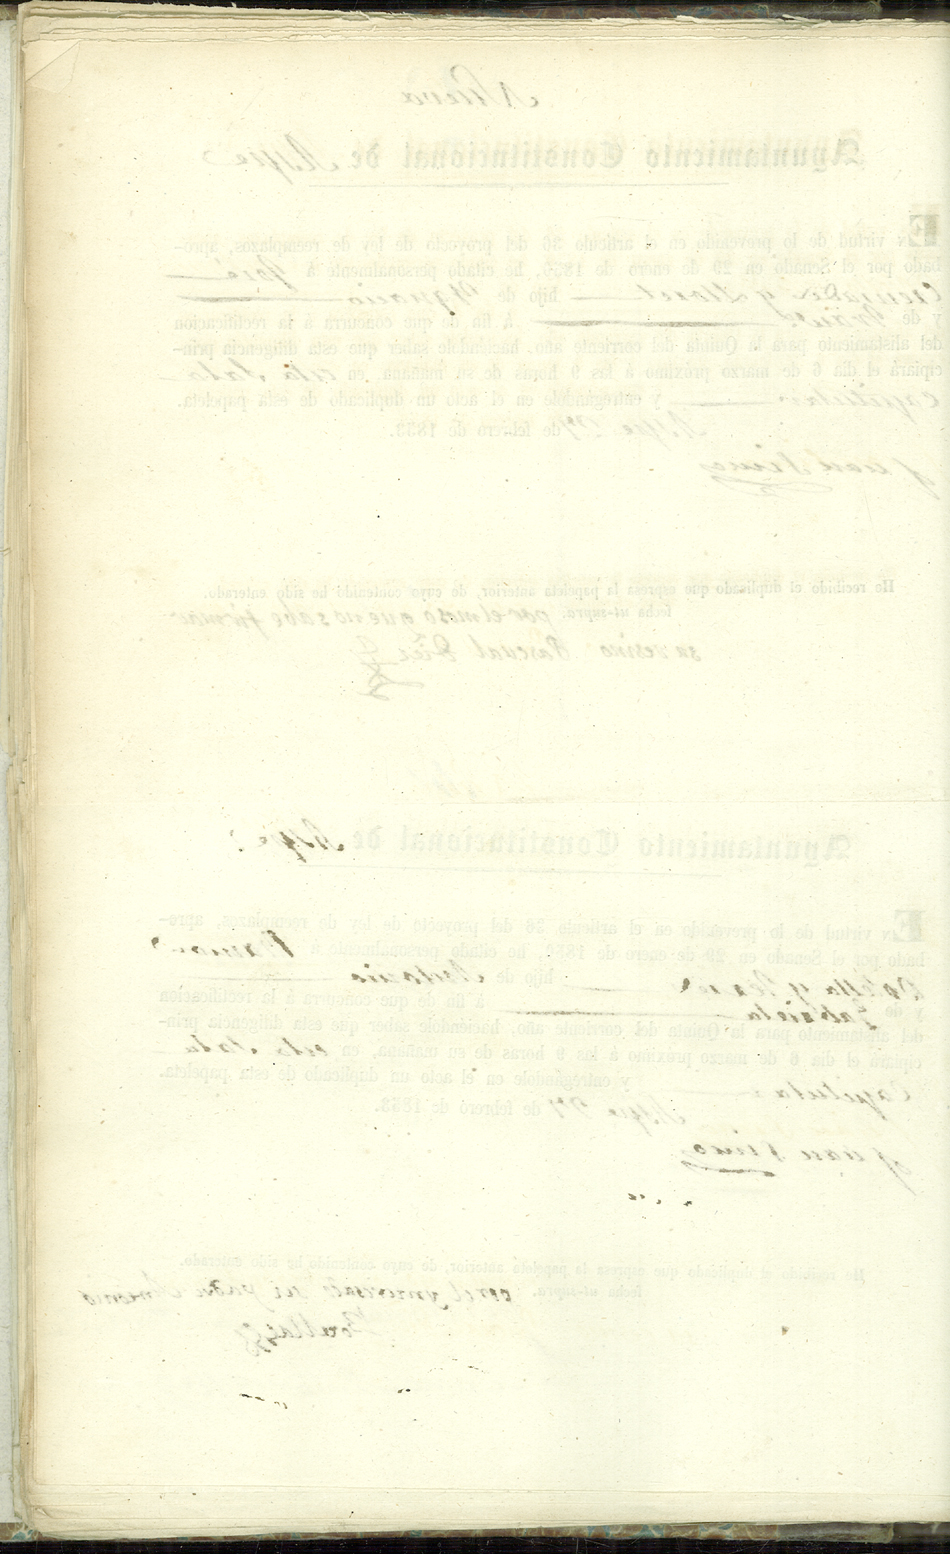 Ayuntamiento Constitucional de Aspe
EN virtud de lo prevenido en el artículo 36 del proyecto de ley de reemplazos, apro-
bado por el Senado en 29 de enero de 1850, he citado personalmente á José
hijo de Ygnacio
y de á fin de que concurra á la rectificacion
del alistamiento para la Quinta del corriente año, haciéndole saber que esta diligencia prin-
cipiará el dia 6 de marzo próximo á las 9 horas de su mañana, en esta Sala
Capitular y entregándole en el acto un duplicado de esta papeleta.
Aspe 27 de febrero de 1853.
Juan
He recibido el duplicado que espresa la papeleta anterior, de cuyo contenido he sido enterado.
fecha ut-supra. por el moso que no sabe firmar
su vesino Pascual Diez
Ayuntamiento Constitucional de Aspe
EN virtud de lo prevenido en el artículo 36 del proyecto de ley de reemplazos, apro-
bado por el Senado en 29 de enero de 1850, he citado personalmente á Ramon
Botella y hijo de Antonio
y de Gabriela á fin de que concurra á la rectificacion
del alistamiento para la Quinta del corriente año, haciéndole saber que esta diligencia prin-
cipiará el dia 6 de marzo próximo á las 9 horas de su mañana, en esta Sala
Capitular y entregándole en el acto un duplicado de esta papeleta.
Aspe 27 de febrero de 1853.
Juan
He recibido el duplicado que espresa la papeleta anterior, de cuyo contenido he sido enterado.
fecha ut-supra. su padre Antonio
Botella